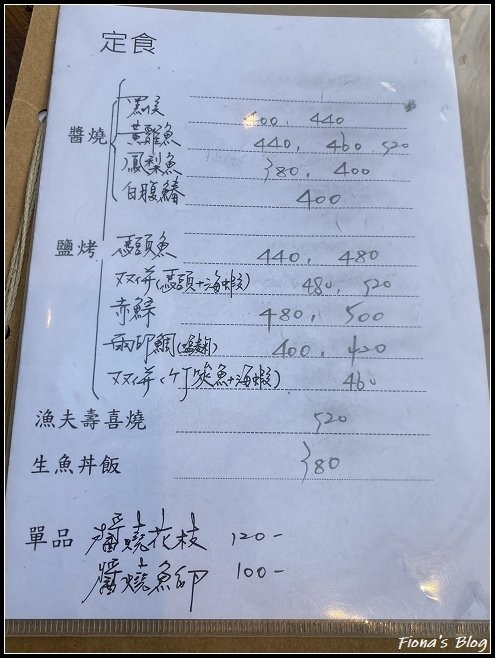 定食
醬燒
黑喉 400, 440
黃雞魚 440, 460, 520
鳳梨魚 380, 400
白腹鰆 400
鹽烤
馬頭魚 440, 480
双併(馬頭+海蝦) 480, 520
赤鯮 480, 500
雨印鯛 400, 420
双併(竹筴魚+海蝦) 460
漁夫壽喜燒 520
生魚丼飯 380
單品 醬燒花枝 120-
醬燒魚卵 100-
Fiona's Blog